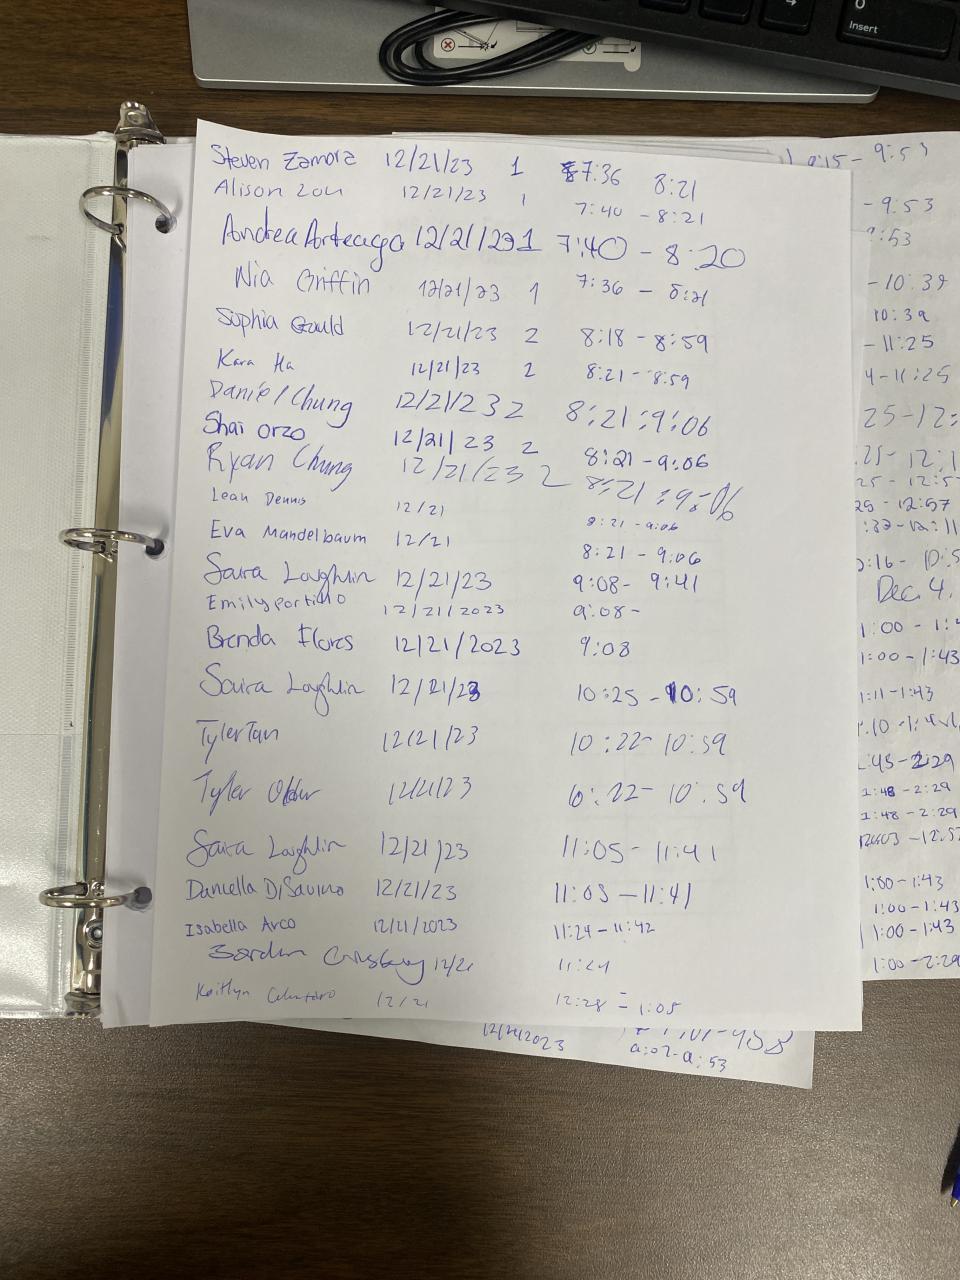 0
Insert
Steven Zamora 12/21/23 1 7:36 8:21
Alison Zou 12/21/23 1 7:40 - 8:21
Andrea Arteaga 12/21/23 1 7:40 - 8:20
Nia Griffin 12/21/23 1 7:36 - 8:21
Sophia Gould 12/21/23 2 8:18 - 8:59
Kara Ha 12/21/23 2 8:21 - 8:59
Daniel Chung 12/21/23 2 8:21:9:06
Shai Orzo 12/21/23 2 8:21 - 9:06
Ryan Chung 12/21/23 2 8:21:9:06
Leah Dennis 12/21 8:21 - 9:06
Eva Mandelbaum 12/21 8:21 - 9:06
Saira Loughlin 12/21/23 9:08 - 9:41
Emily portillo 12/21/2023 9:08 -
Brenda Flores 12/21/2023 9:08
Saira Loughlin 12/21/23 10:25 - 10:59
Tyler Tan 12/21/23 10:22 - 10:59
Tyler 12/21/23 10:22 - 10:59
Saira Loughlin 12/21/23 11:05 - 11:41
Daniella DiSavino 12/21/23 11:05 - 11:41
Isabella Arco 12/21/2023 11:24 - 11:42
12/21 11:24
Kaitlyn 12/21 12:28 - 1:05
9:15 - 9:53
- 9:53
:53
- 10:39
10:39
- 11:25
- 11:25
25 - 12:
25 - 12:1
25 - 12:5
25 - 12:57
:16 - 10:5
Dec. 4,
1:00 - 1:4
1:00 - 1:43
1:11 - 1:43
:45 - 2:29
1:48 - 2:29
1:48 - 2:29
1:00 - 1:43
1:00 - 1:43
1:00 - 1:43
1:00 - 2:29